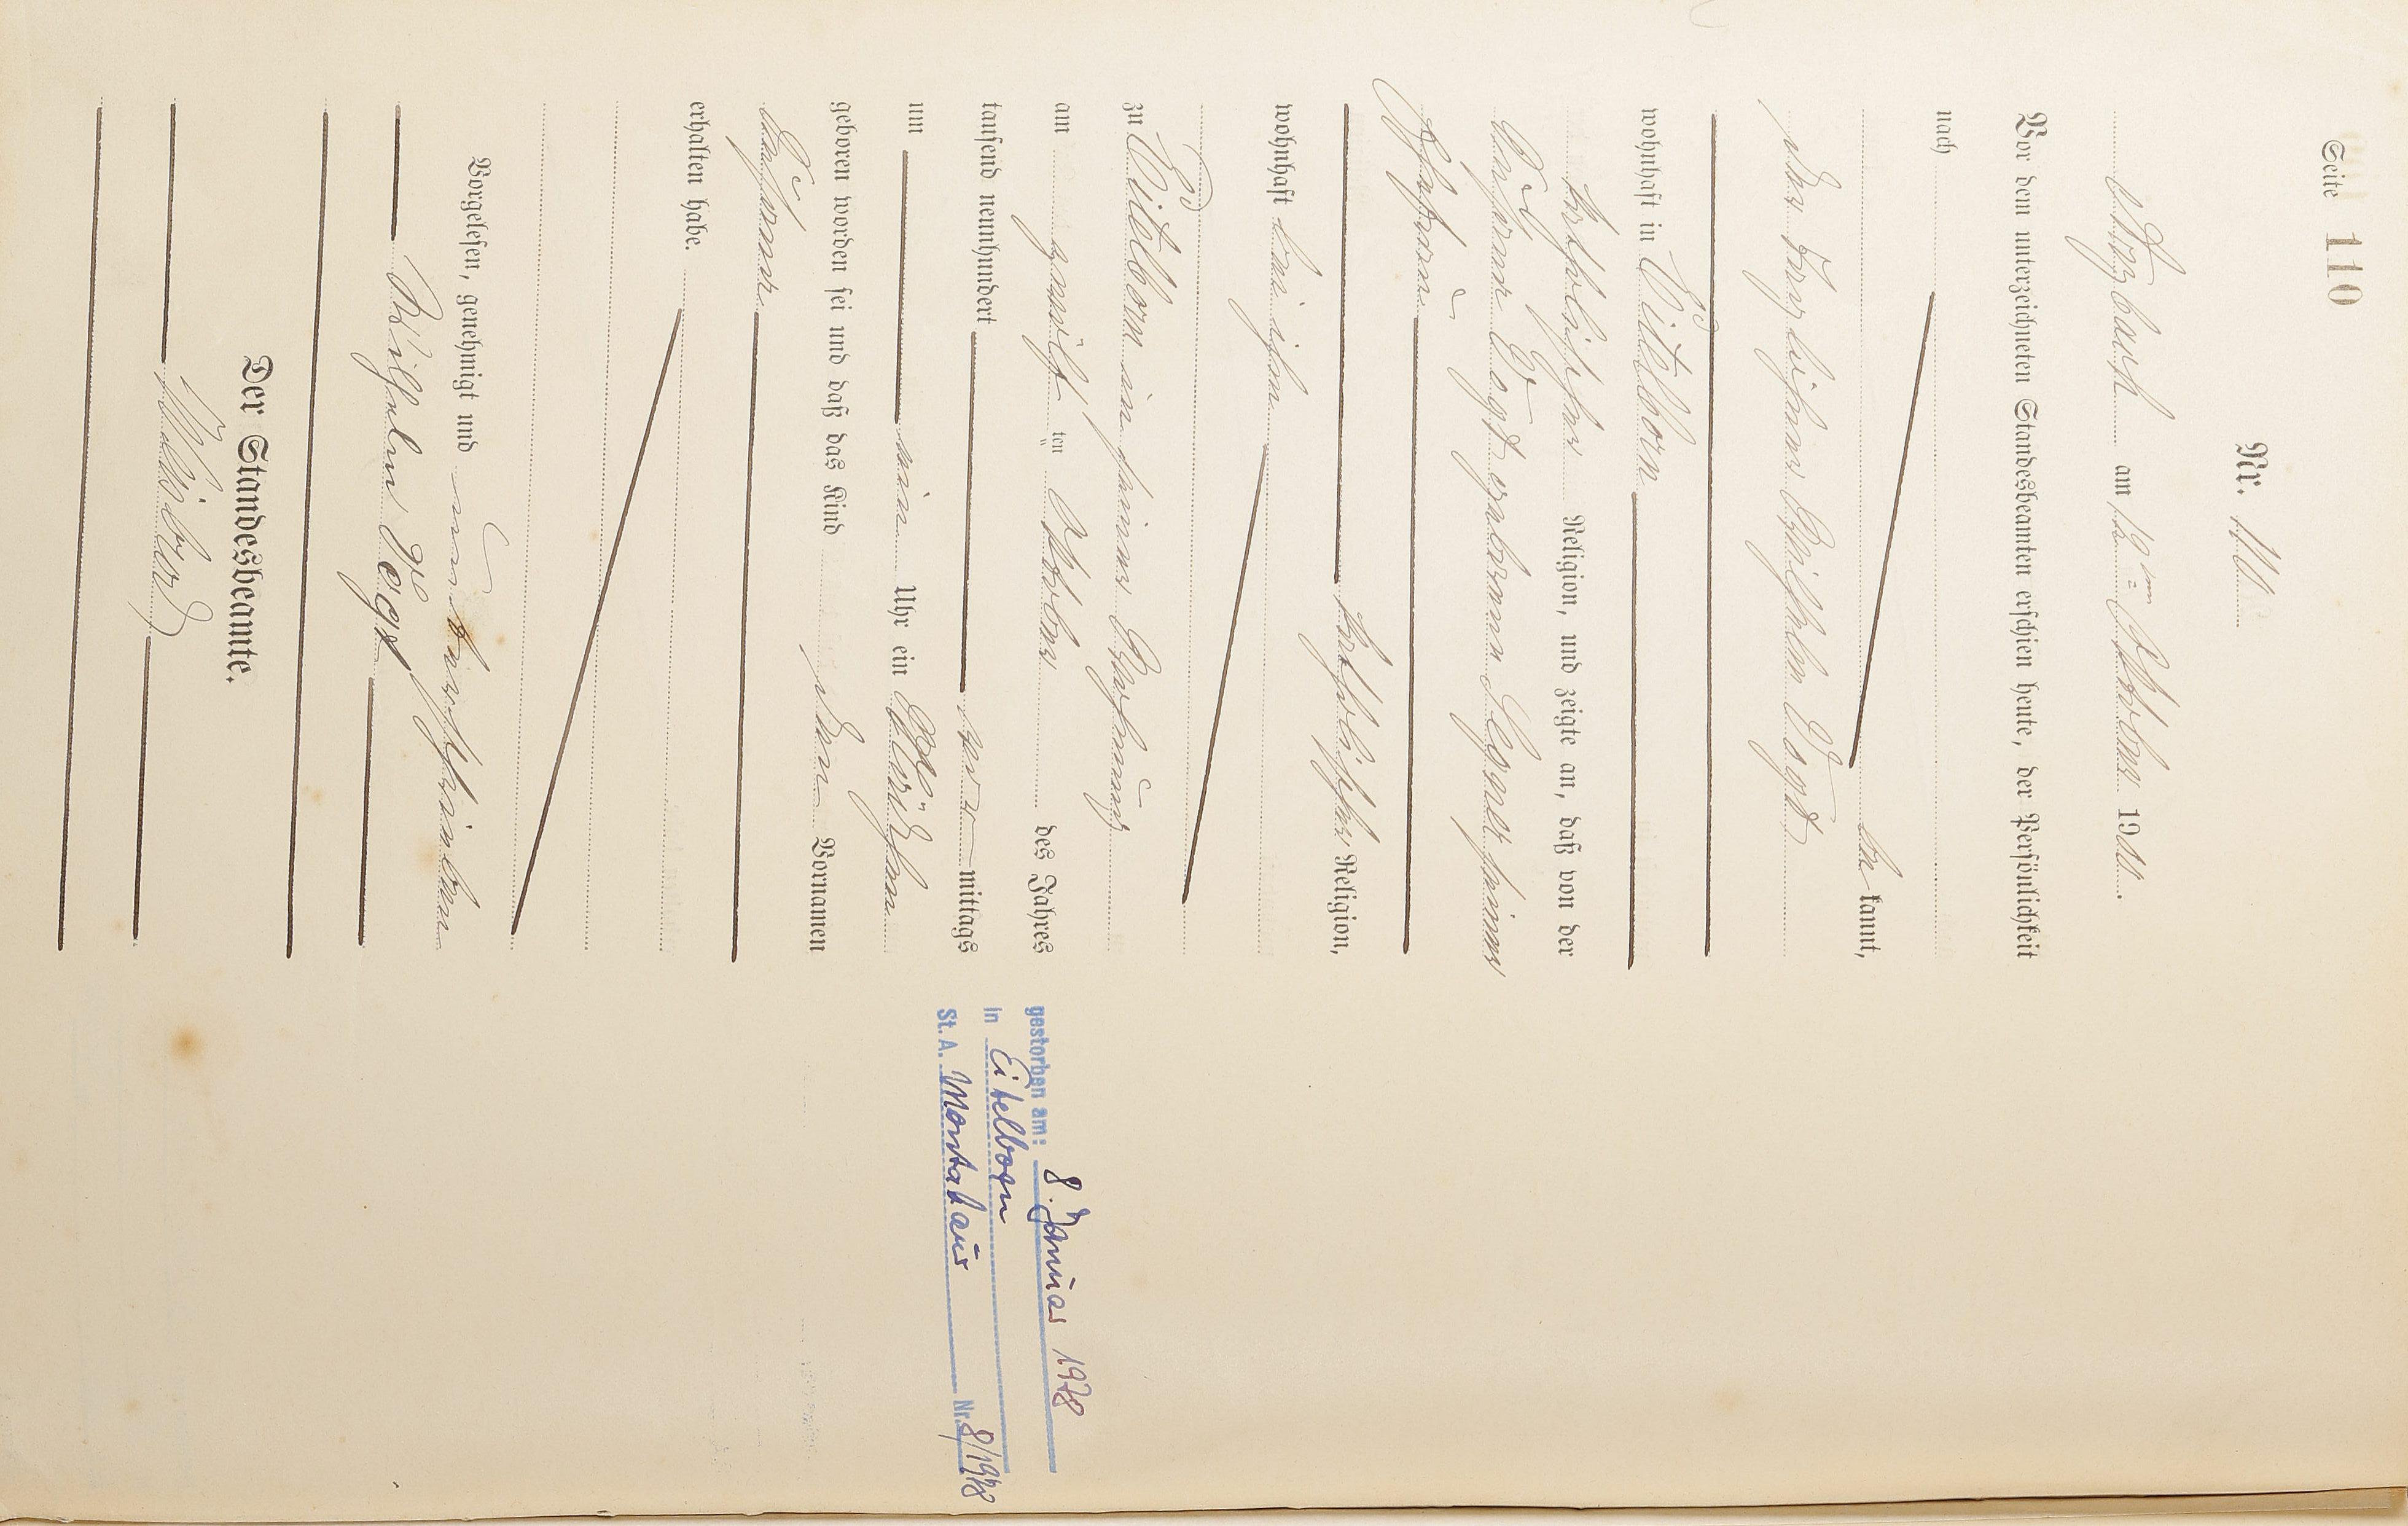 Seite 110
Nr. 110
Arzbach am 12ten Oktober 1911.
Vor dem unterzeichneten Standesbeamten erschien heute, der Persönlichkeit
nach
be kannt,
der Wilhelm Vogt
wohnhaft in Eitelborn
katholischer Religion, und zeigte an, daß von der
Vogt geborenen seiner
Ehefrau
katholischer Religion,
wohnhaft bei ihm
zu Eitelborn in seiner Wohnung
am zwölften Oktober des Jahres
tausend neunhundert vormittags
um ein Uhr ein Mädchen
geboren worden sei und daß das Kind den Vornamen
Johanna
erhalten habe.
Vorgelesen, genehmigt und unterschrieben
Wilhelm Vogt
Der Standesbeamte.
gestorben am: 8. Januar 1978
in Eitelborn
St. A. Montabaur Nr. 8/1978